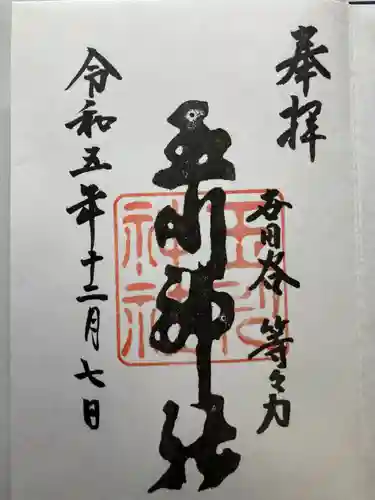 奉拝
世田谷 等々力
玉川神社
玉川神社
令和五年十二月七日